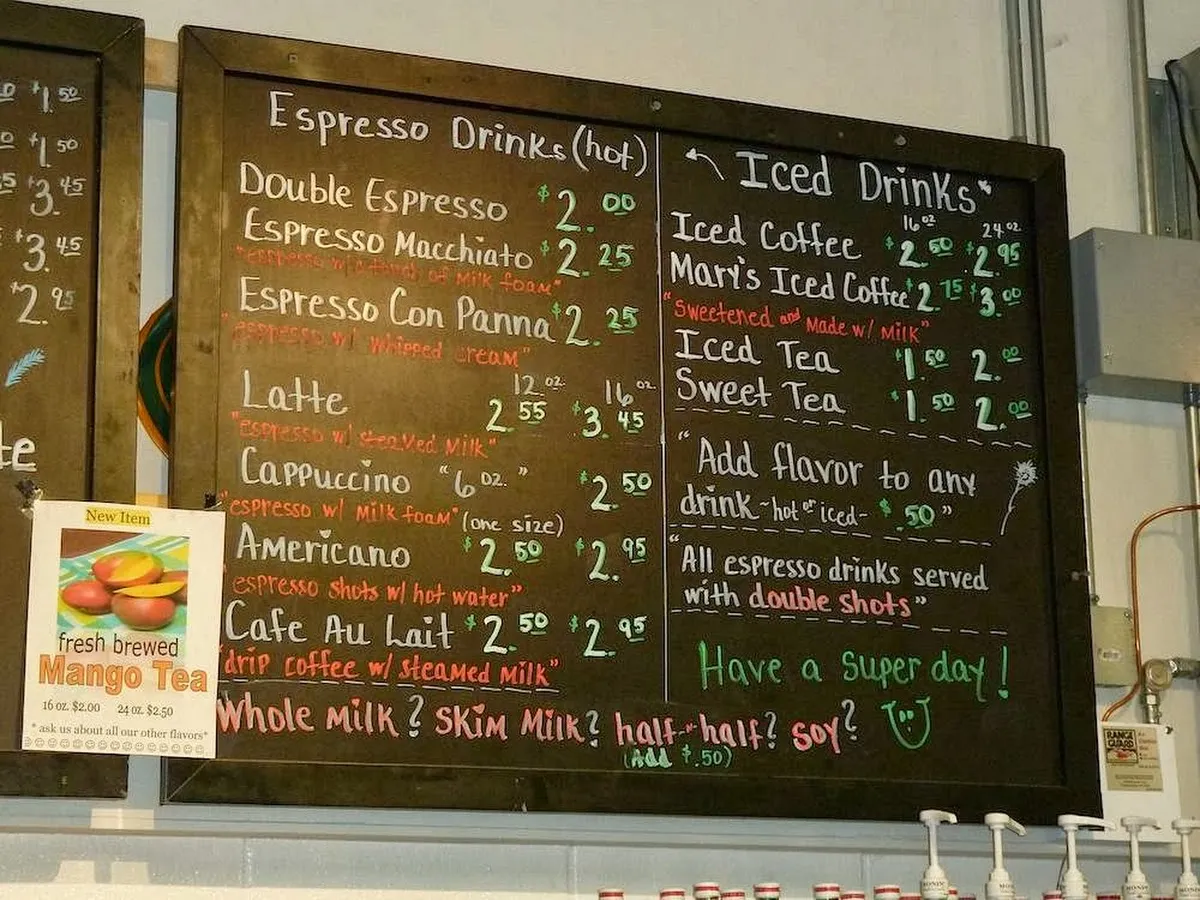 $1.50
$1.50
$3.45
$3.45
$2.95
te
New Item
fresh brewed
Mango Tea
16 oz. $2.00 24 oz. $2.50
* ask us about all our other flavors*
Espresso Drinks (hot)
Double Espresso $2.00
Espresso Macchiato $2.25
"espresso w/ a touch of milk foam"
Espresso Con Panna $2.25
"espresso w/ whipped cream"
12 oz. 16 oz.
Latte 2.55 $3.45
"espresso w/ steamed milk"
Cappuccino "6 oz." $2.50
"espresso w/ milk foam" (one size)
Americano $2.50 $2.95
"espresso shots w/ hot water"
Cafe Au Lait $2.50 $2.95
"drip coffee w/ steamed milk"
Whole Milk? Skim Milk? half-n-half? soy?
(Add $.50)
Iced Drinks"
16 oz 24 oz
Iced Coffee $2.50 $2.95
Mary's Iced Coffee $2.75 $3.00
"Sweetened and Made w/ Milk"
Iced Tea $1.50 2.00
Sweet Tea $1.50 2.00
"Add flavor to any
drink ~ hot or iced ~ $.50"
"All espresso drinks served
with double shots"
Have a super day!
RANGE GUARD
MONIN